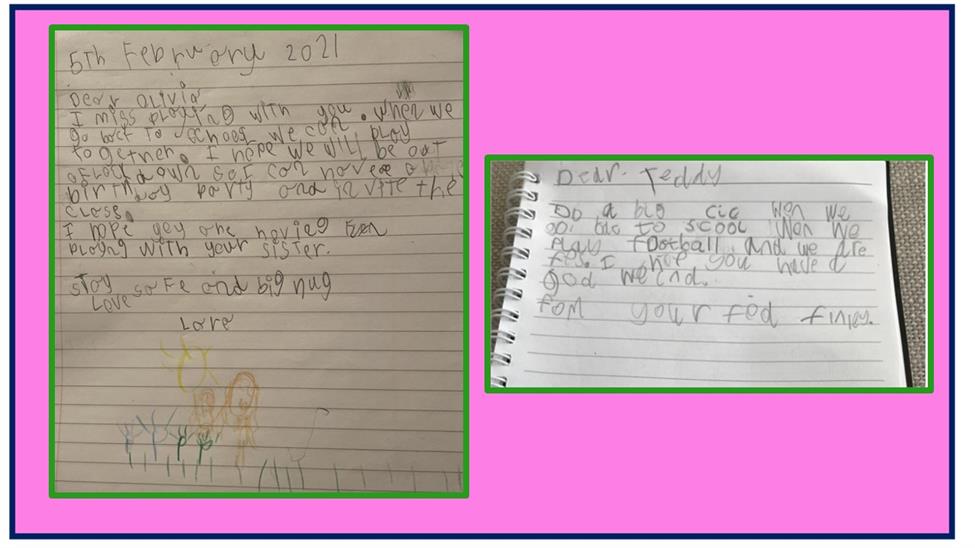 5Th February 2021
Dear Olivia
I miss playing with you. When we
go back to school we can play
together. I hope we will be out
of Lockdown so I can have a
birthday party and invite the
class.
I hope yey are having Fun
playing with your sister.
Stay safe and big hug
Love
Love
Dear. Teddy
Do a big cic wen we
go bac to scool wen we
Play football and we are
I hop you have a
God weind.
fom your fed finley.